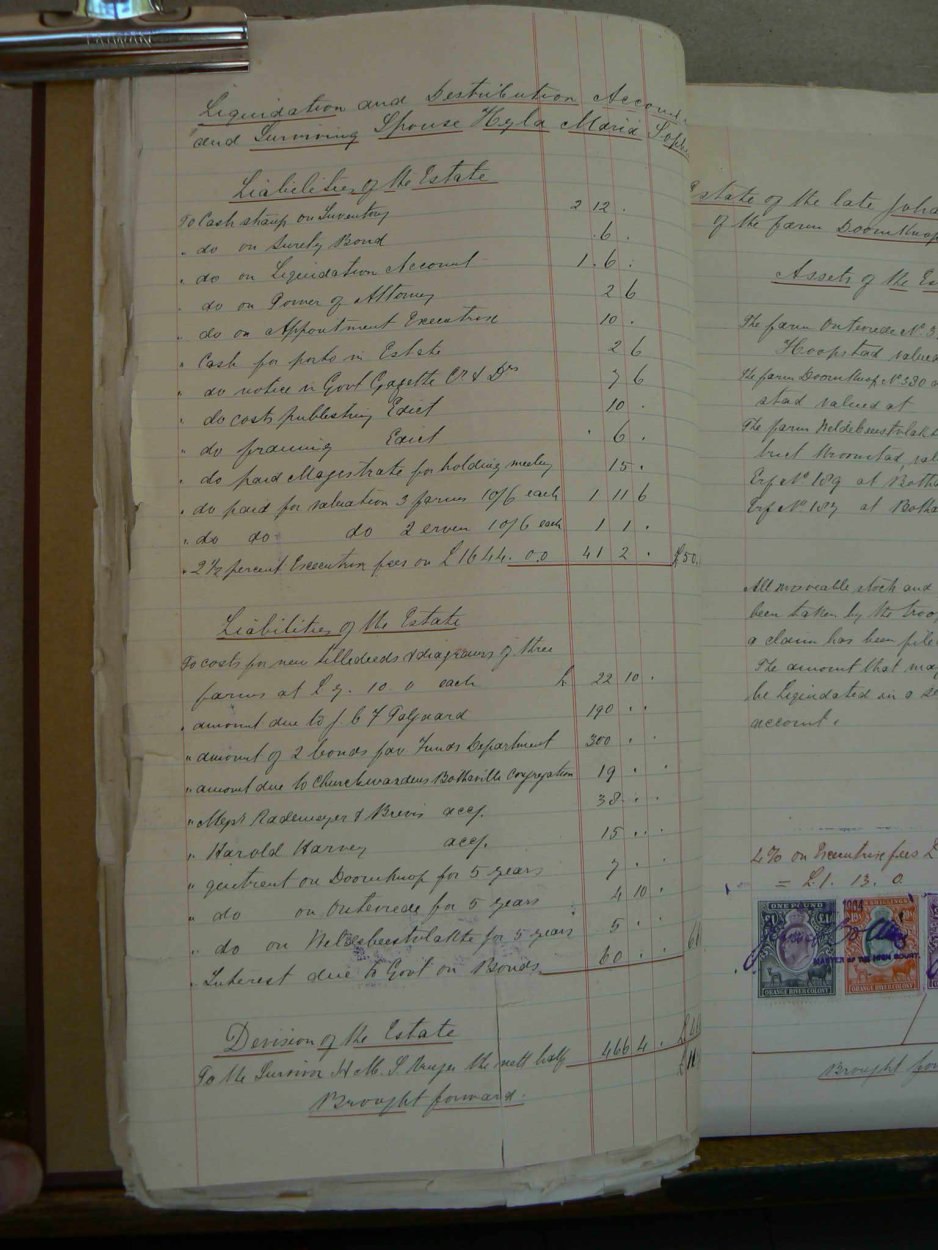 Liquidation and Distribution Account
and Surviving Spouse Hyla Maria Soph
Liabilities of the Estate
To Cash stamp on Inventory 2 12 .
" do on Surety Bond . 6 .
" do on Liquidation Account 1 . 6 .
" do on Power of Attorney 2 6
" do on Appointment Executrix 10 .
" Cash for ports in Estate 2 6
" do notice in Govt Gazette Crs & Drs 7 6
" do costs publishing Edict 10 .
" do framing Edict . 6 .
" do paid Magistrate for holding meeting 15 .
" do paid for valuation 3 farms 10/6 each 1 11 6
" do do do 2 erven 10/6 each 1 1 .
" 2½ percent Executrix fees on £1644 . 0.0 41 2 . £50.
Liabilities of the Estate
To costs for new titledeeds & diagrams of three
farms at £7. 10. 0 each £ 22 10 .
" amount due to J C F 190 . .
" amount of 2 bonds fav Funds Department 300 . .
" amount due to Churchwardens Bothaville Congregation 19 . .
" Messrs Rademeyer & Brevis accp. 38 . .
" Harold Harvey accp. 15 . .
" quitrent on Doornknop for 5 years 7 . .
" do on Ontevrede for 5 years 4 10 .
" do on Wildebeestvlakte for 5 years 5 . .
" Interest due to Govt on Bonds 60 . .
Devision of the Estate
To the Survivor H. M. S. Kruger the nett half 466 4 .
Brought forward.
Estate of the late Joha
of the farm Doornknop
Assets of the Es
The farm Ontevrede No 3
Hoopstad valued
The farm Doornknop No 330
stad valued at
The farm Wildebeestvlakte
trict Kroonstad, val
Erf No 189 at Botha
Erf No 187 at Botha
All moveable stock and
been taken by the troo
a claim has been file
The amount that may
be liquidated in a se
account.
4% on Executrix fees £
= £1. 13. 0.
ONE POUND
£1 £1
ORANGE RIVER COLONY
1904
SHILLINGS
MASTER OF THE HIGH COURT.
ORANGE RIVER COLONY
Brought for